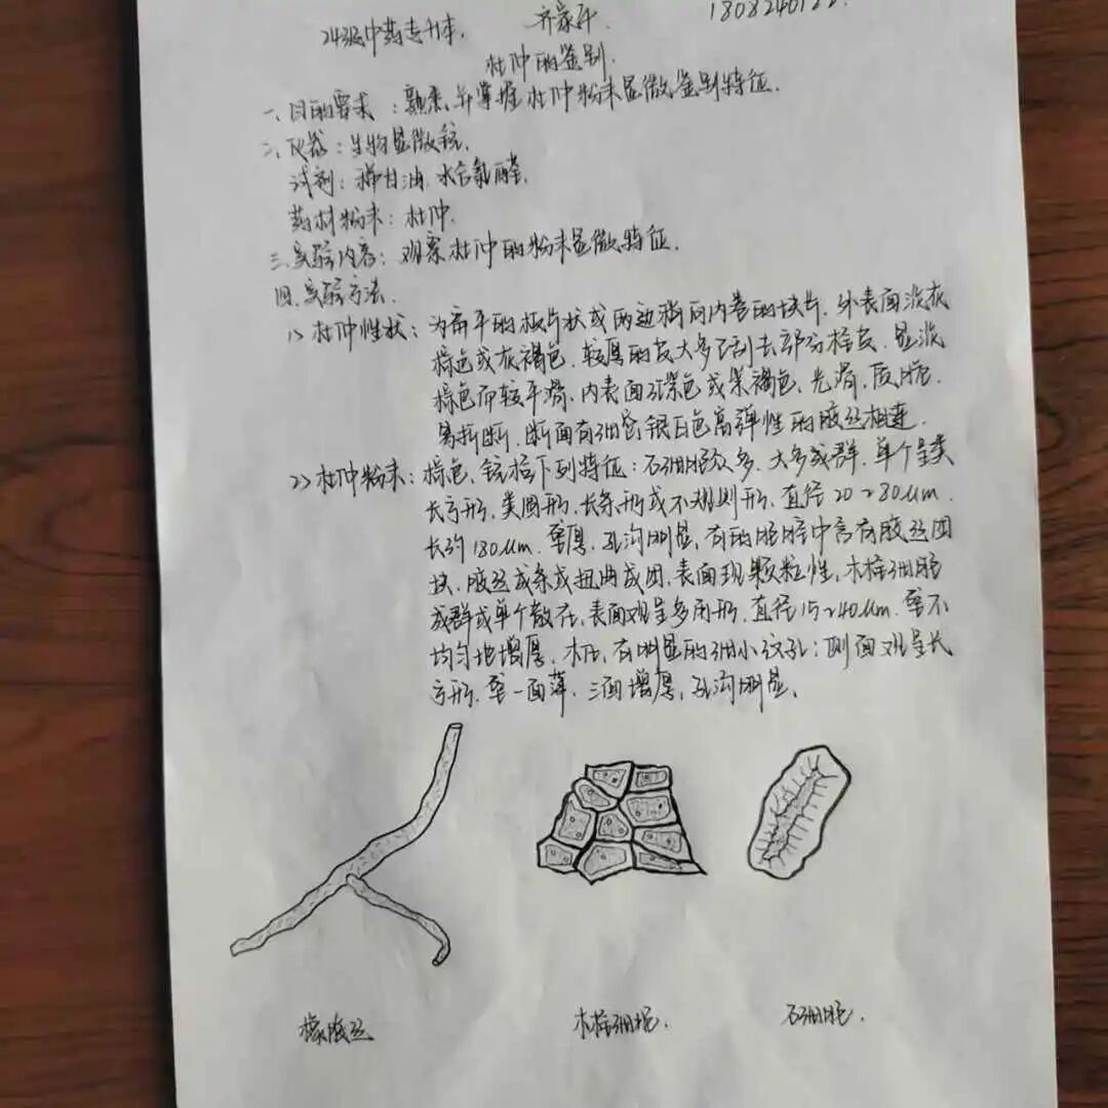 24级中药专升本. 齐家
杜仲的鉴别.
一、目的要求：熟悉并掌握杜仲粉末显微鉴别特征.
二、仪器：生物显微镜.
试剂：稀甘油.水合氯醛.
药材粉末：杜仲.
三.实验内容：观察杜仲的粉末显微特征.
四.实验方法.
1)杜仲性状：为扁平的板片状或两边稍向内卷的块片.外表面淡灰
棕色或灰褐色.较厚的皮大多已刮去部分栓皮.显淡
棕色而较平滑.内表面红紫色或紫褐色.光滑.质脆.
易折断.断面有细密银白色高弹性的胶丝相连.
2)杜仲粉末：棕色.镜检下列特征：石细胞众多.大多成群.单个呈类
长方形.类圆形.长条形或不规则形.直径20~80μm.
长约180μm.壁厚.孔沟明显.有的胞腔中含有胶丝团
块.胶丝成条或扭曲成团.表面现颗粒性.木栓细胞
成群或单个散在.表面观呈多角形.直径15~40μm.壁不
均匀地增厚.木化.有明显的细小纹孔；侧面观呈长
方形.壁一面薄.三面增厚.孔沟明显.
橡胶丝 木栓细胞. 石细胞.